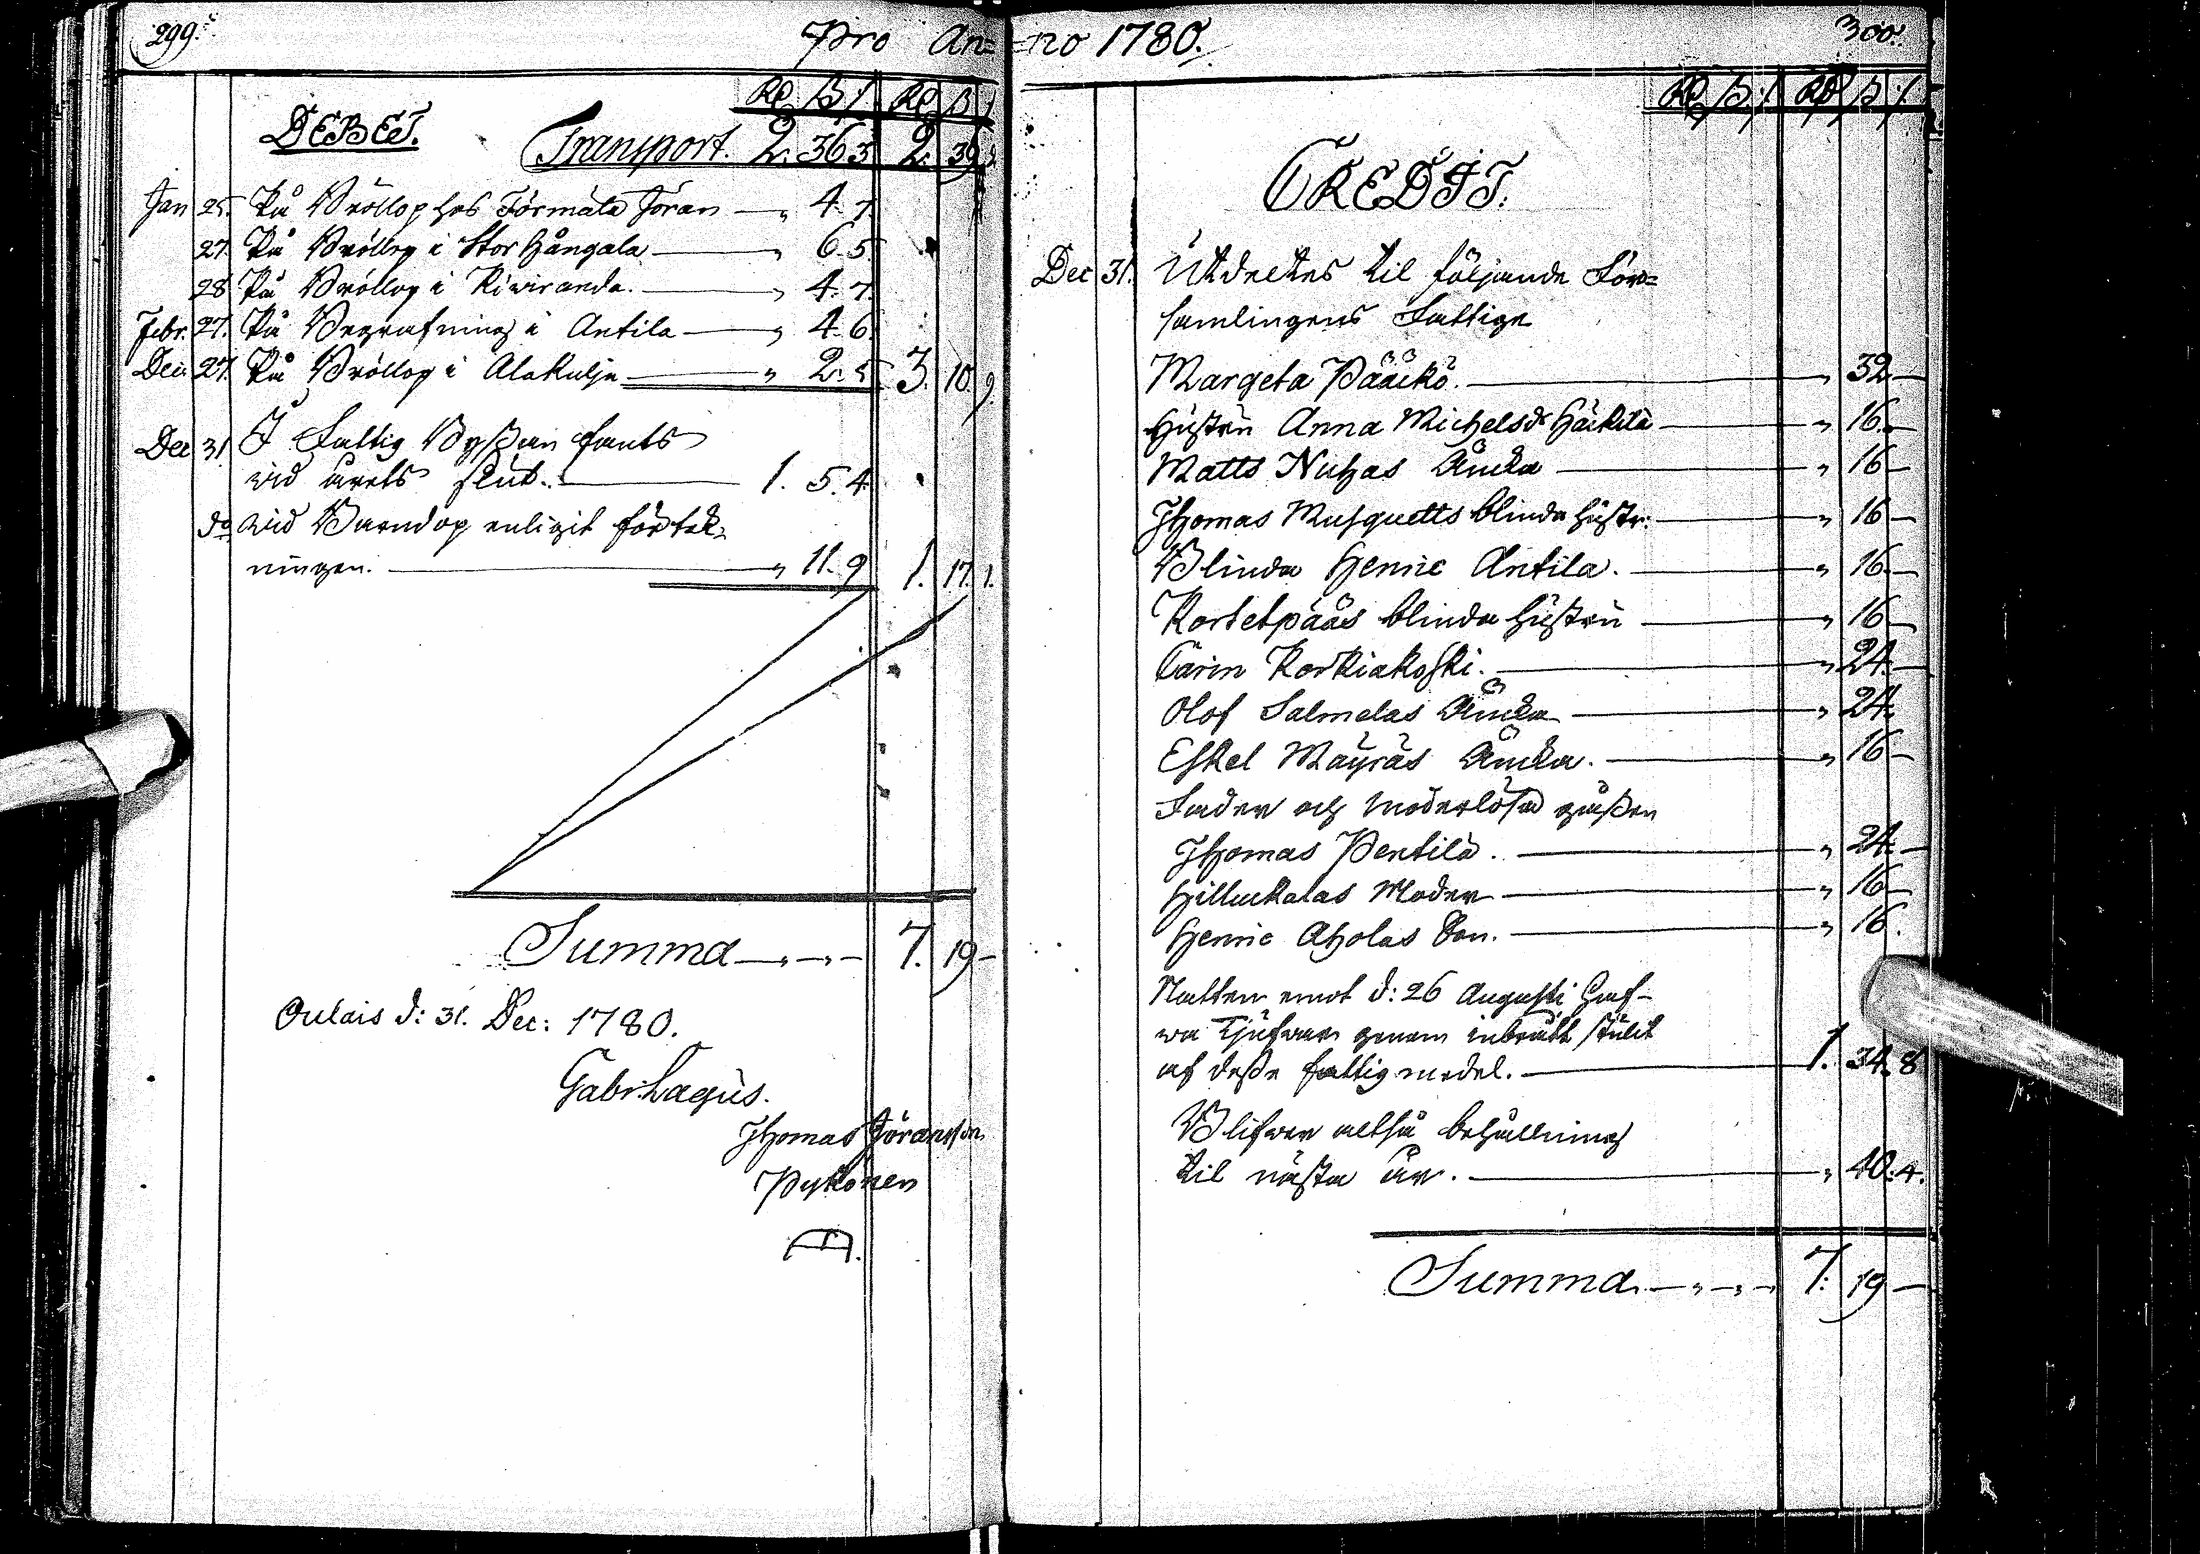 299.
Pro An=
Rd ß /. Rd ß /.
DEBET.
Transport. 2. 36 3 2. 39 3.
Jan 25. På Bröllop hos Förmåla Jöran — " 4. 7.
27. På Bröllop i Stor Hångala — " 6. 5.
28 På Bröllop i Kiwiranda. — " 4. 7.
Febr. 27. På Begrafning i Antila — " 4. 6.
Dec. 27. På Bröllop i Alakulju — " 2. 5 3. 10. 9.
Dec 31. I Fattig Byßan fants
wid årets slut. — 1. 5. 4.
do wid Barndop enligit förtek-
ningen. — " 11. 9 1. 17. 1.
Summa — 7. 19 —
Oulais d: 31. Dec: 1780.
Gabr. Lagus.
Thomas Jöransson
Pykönen
=no 1780.
300.
Rd ß /. Rd ß /.
CREDIT.
Dec 31. Utdeltes til följande För=
samlingens Fattige
Margeta Pääckö. — " 32 —
Hustru Anna Michelsdr Häckilä — " 16. —
Matts Nuhas Änka — " 16 —
Thomas Musquetts blinda hustr. — " 16 —
Blinda Henric Antila. — " 16. —
Kortetpääs blinda hustru — " 16 —
Carin Korkiakoski. — " 24. —
Olof Salmelas Änka — " 24.
Eskel Mäyräs Änka. — " 16 —
Fader och moderlösa gåßen
Thomas Pentilä. — " 24. —
Hilluckalas Moder — " 16 —
Henric Aholas Son. — " 16.
Natten emot d: 26 Augusti haf-
wa Tjufwar genom inbrått stulit
af deße fattig medel. — 1. 34. 8
Blifwer altså behållning
til nästa år. — " 40. 4.
Summa. — 7. 19 —